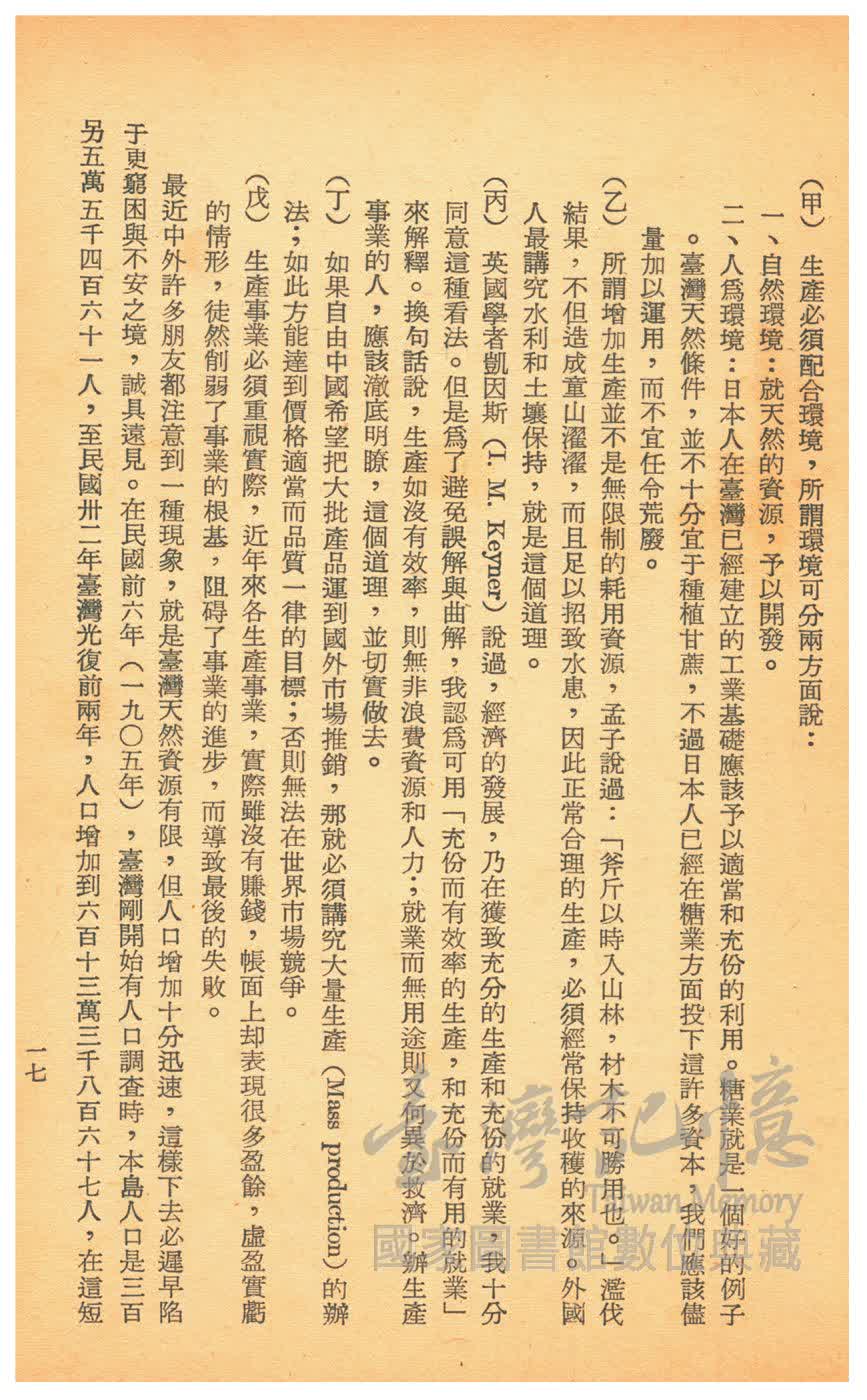 （甲）　生產必須配合環境，所謂環境可分兩方面說：
一、自然環境：就天然的資源，予以開發。
二、人爲環境：日本人在臺灣已經建立的工業基礎應該予以適當和充份的利用。糖業就是一個好的例子
。臺灣天然條件，並不十分宜于種植甘蔗，不過日本人已經在糖業方面投下這許多資本，我們應該儘
量加以運用，而不宜任令荒廢。
（乙）　所謂增加生產並不是無限制的耗用資源，孟子說過：「斧斤以時入山林，材木不可勝用也。」濫伐
結果，不但造成童山濯濯，而且足以招致水患，因此正常合理的生產，必須經常保持收穫的來源。外國
人最講究水利和土壤保持，就是這個道理。
（丙）　英國學者凱因斯（I. M. Keyner）說過，經濟的發展，乃在獲致充分的生產和充份的就業，我十分
同意這種看法。但是爲了避免誤解與曲解，我認爲可用「充份而有效率的生產，和充份而有用的就業」
來解釋。換句話說，生產如沒有效率，則無非浪費資源和人力；就業而無用途則又何異於救濟。辦生產
事業的人，應該澈底明瞭，這個道理，並切實做去。
（丁）　如果自由中國希望把大批產品運到國外市場推銷，那就必須講究大量生產（Mass production）的辦
法；如此方能達到價格適當而品質一律的目標；否則無法在世界市場競爭。
（戊）　生產事業必須重視實際，近年來各生產事業，實際雖沒有賺錢，帳面上却表現很多盈餘，虛盈實虧
的情形，徒然削弱了事業的根基，阻碍了事業的進步，而導致最後的失敗。
最近中外許多朋友都注意到一種現象，就是臺灣天然資源有限，但人口增加十分迅速，這樣下去必遲早陷
于更窮困與不安之境，誠具遠見。在民國前六年（一九〇五年），臺灣剛開始有人口調查時，本島人口是三百
另五萬五千四百六十一人，至民國卅二年臺灣光復前兩年，人口增加到六百十三萬三千八百六十七人，在這短
一七
臺灣記憶
Taiwan Memory
國家圖書館數位典藏